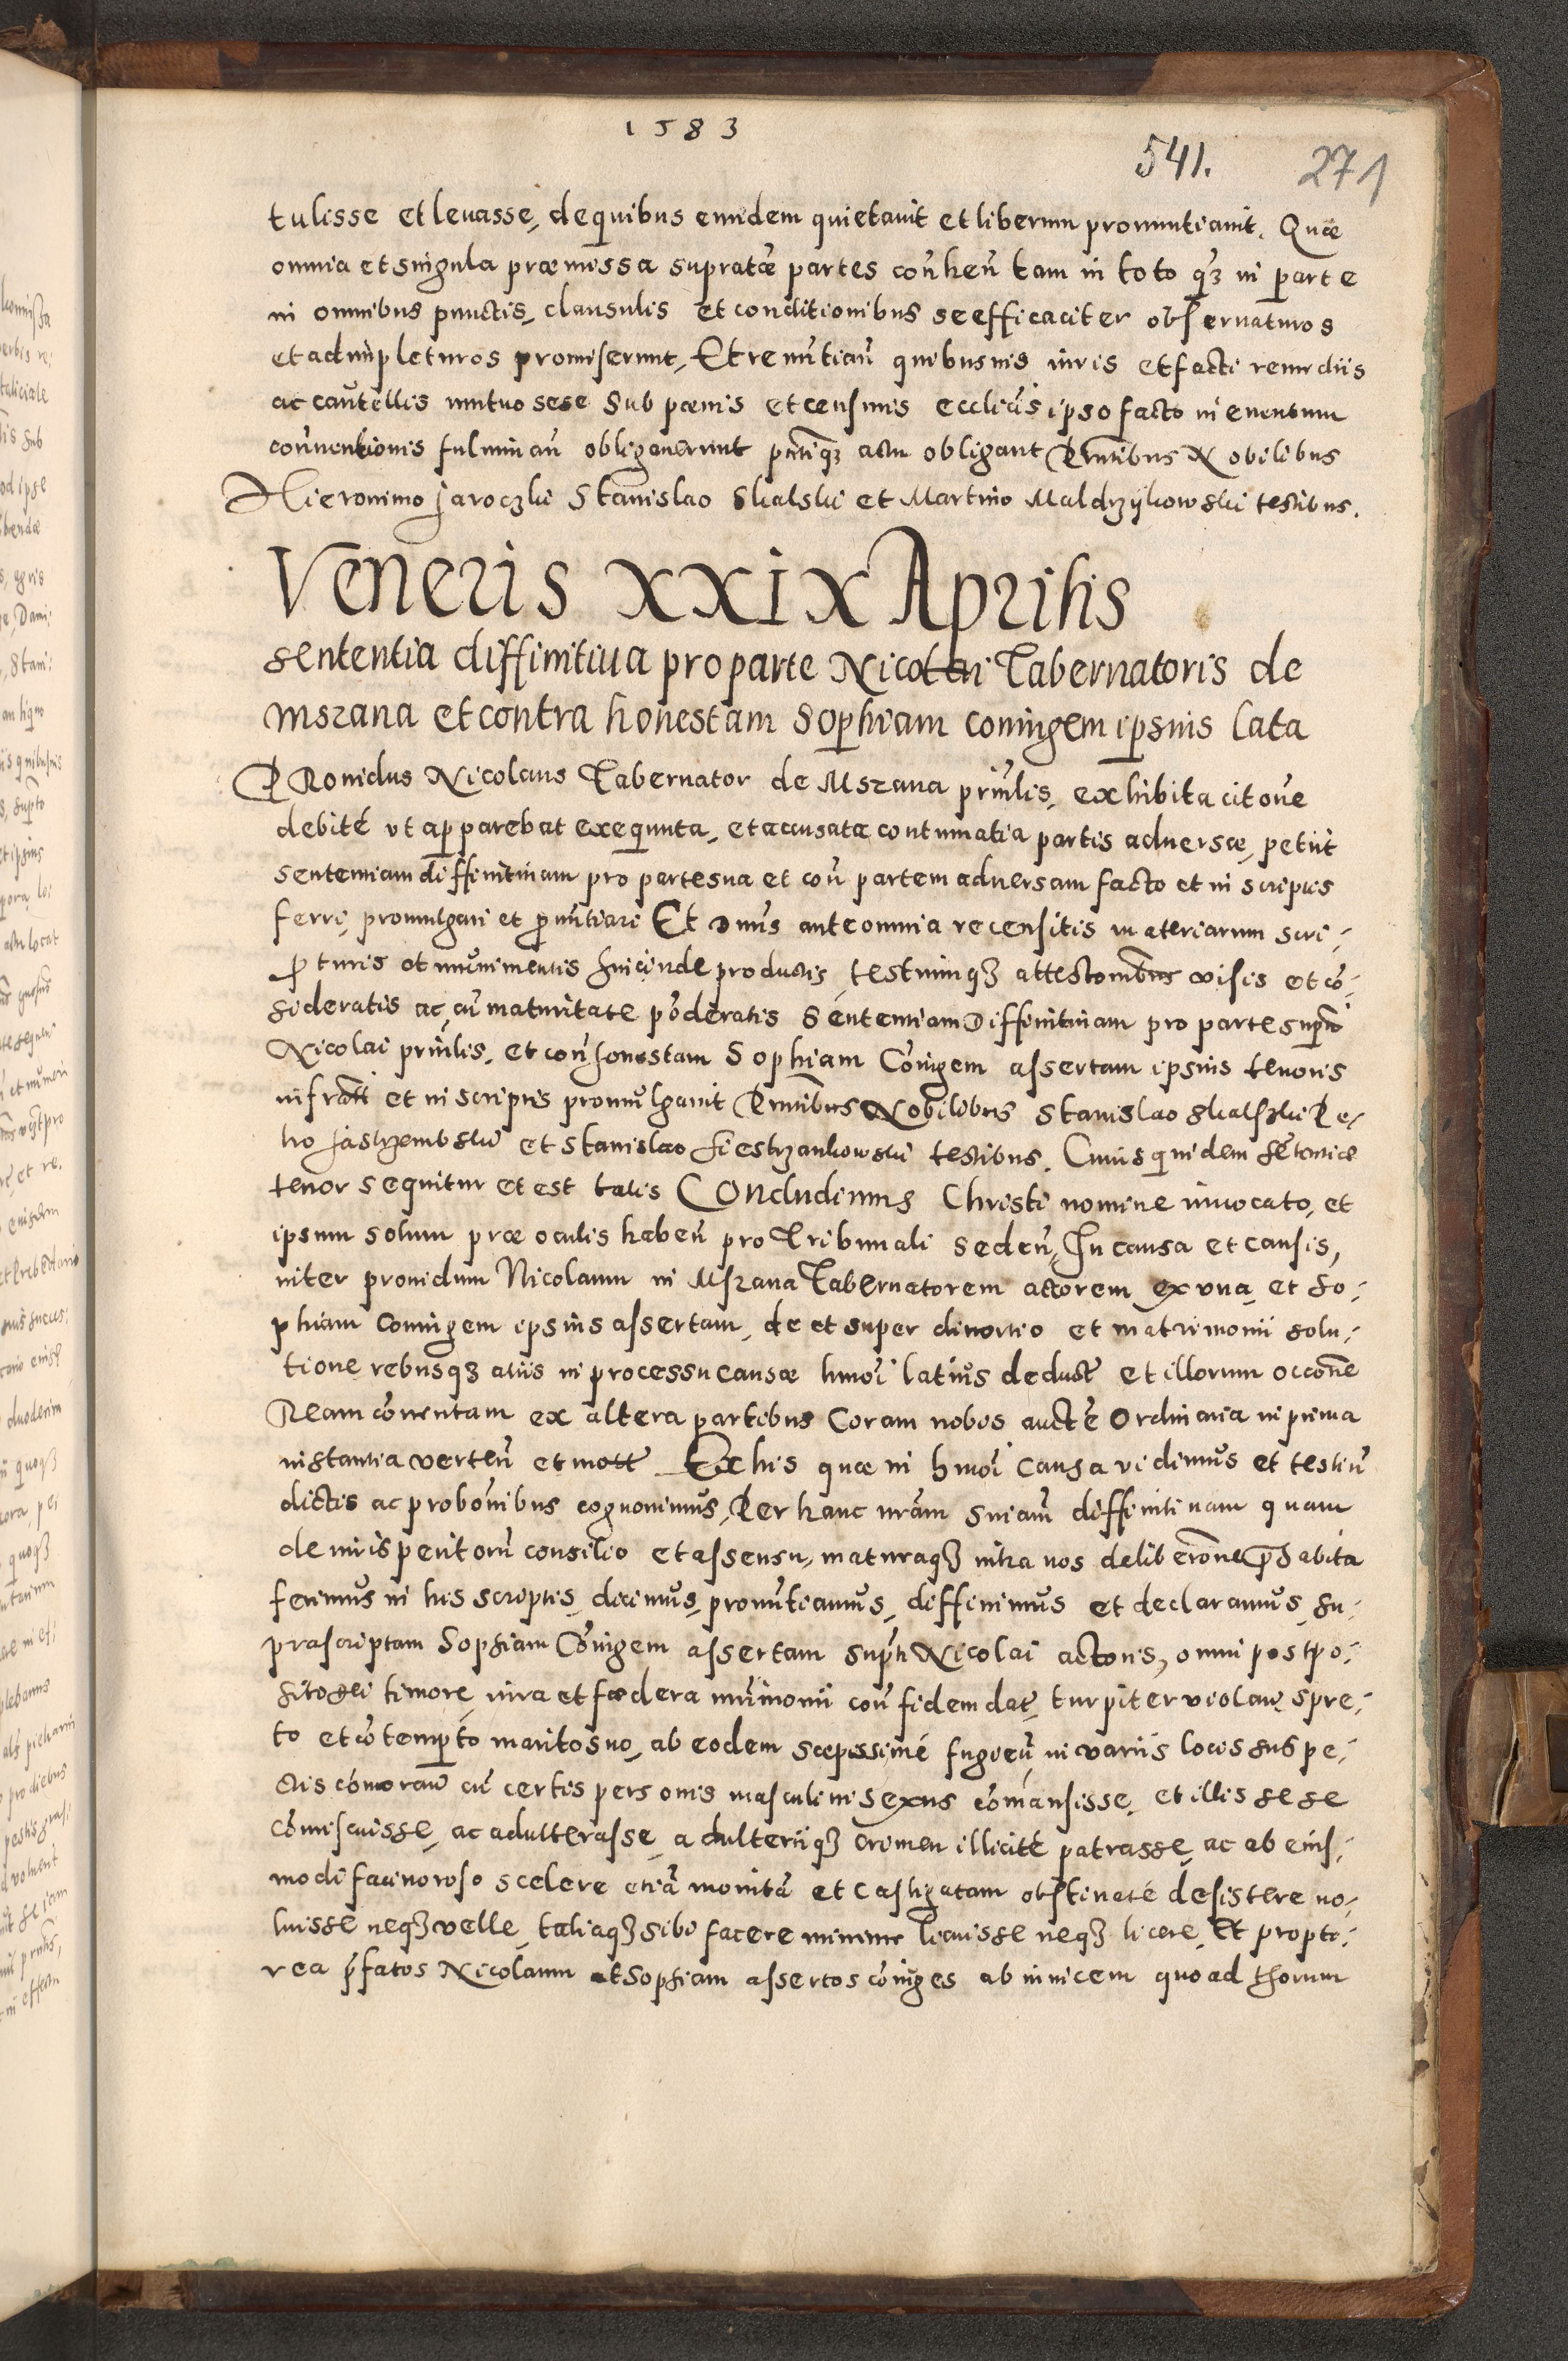 1583
541. 271
tulisse et leuasse, de quibus eundem quietauit et liberum pronuntiauit. Quæ
omnia et singula præmissa supratæ partes coñheñ tam in toto qz in parte
in omnibus punctis, clausulis et conditionibus se efficaciter obseruaturos
et adimpleturos promiserunt, Et renuntiañ quibusuis iuris et facti remediis
ac cautellis mutuo sese sub pœnis et censuris ecclicis ipso facto in euentum
conuentionis fulminañ obligauerunt pntiqz actu obligant Pñtibus Nobilibus
Hieronimo Jaroczki Stanislao Skalski et Martino Maldrzÿkowski testibus.
Veneris XXIX Aprilis
sententia diffinitiua pro parte Nicolai Tabernatoris de
Mszana et contra honestam Sophiam coniugem ipsius lata
PRouidus Nicolaus Tabernator de Mszana prinlis, exhibita citoñe
debité vt apparebat exequuta, et accusata contumatia partis aduersæ, petiit
sententiam diffinitiuam pro parte sua et coñ partem aduersam facto et in scriptis
ferri, promulgari et ꝓnuntiari Et Dnus ante omnia recensitis materiarum scri-
pturis et munimentis hincinde productis, testiumqz attestonibus visis et cō-
sideratis ac cū maturitate pōderatis Sententiam Diffinitiuam pro parte supto
Nicolai prinlis, et coñ honestam Sophiam Cōiugem assertam ipsius tenoris
infratti et in scriptis promulgauit Pñtibus Nobilibus Stanislao Skalszki Pe-
tro Jastrzembski et Stanislao Jestrzankowski testibus. Cuius quidem sētentiæ
tenor sequitur et est talis COncludimus Christi nomine inuocato, et
ipsum solum præ oculis habeñ pro Tribunali sedeñ, In causa et causis,
inter prouidum Nicolaum in Mszana Tabernatorem actorem ex vna, et So-
phiam Coniugem ipsius assertam, de et super diuortio et matrimonii solu-
tione rebusqz aliis in processu causæ hmoi latius deduct et illorum occone
Ream conuentam ex altera partibus Coram nobis aucte Ordinaria in prima
instantia verteñ et mott Ex his quæ in hmoi causa vidimus et testiū
dictis ac probonibus cognouimus, Per hanc nrām sniam diffinitiuam quam
de iuris peritorū consilio et assensu, maturaqz intra nos deliberone præhabita
ferimus in his scriptis, dicimus, pronūtiamus, diffinimus et declaramus, su-
prascriptam Sophiam Cōiugem assertam supti Nicolai actoris, omni postpo-
sito dei timore, iura et fœdera mrimonii coñ fidem dat, turpiter violañ, spre-
to et cōtempto marito suo, ab eodem sæpissimé fugieñ, in variis locis suspe-
ctis cōmorañ cū certis personis masculini sexus cōmansisse, et illis sese
cōmiscuisse, ac adulterasse, adulteriiqz crimen illicité patrasse, ac ab eius-
modi facinoroso scelere etiā monitā et castigatam obstinaté desistere no-
luisse neqz velle, taliaqz sibi facere minime licuisse neqz licere, Et propte-
rea p̄fatos Nicolaum et Sophiam assertos cōiuges ab inuicem quoad thorum